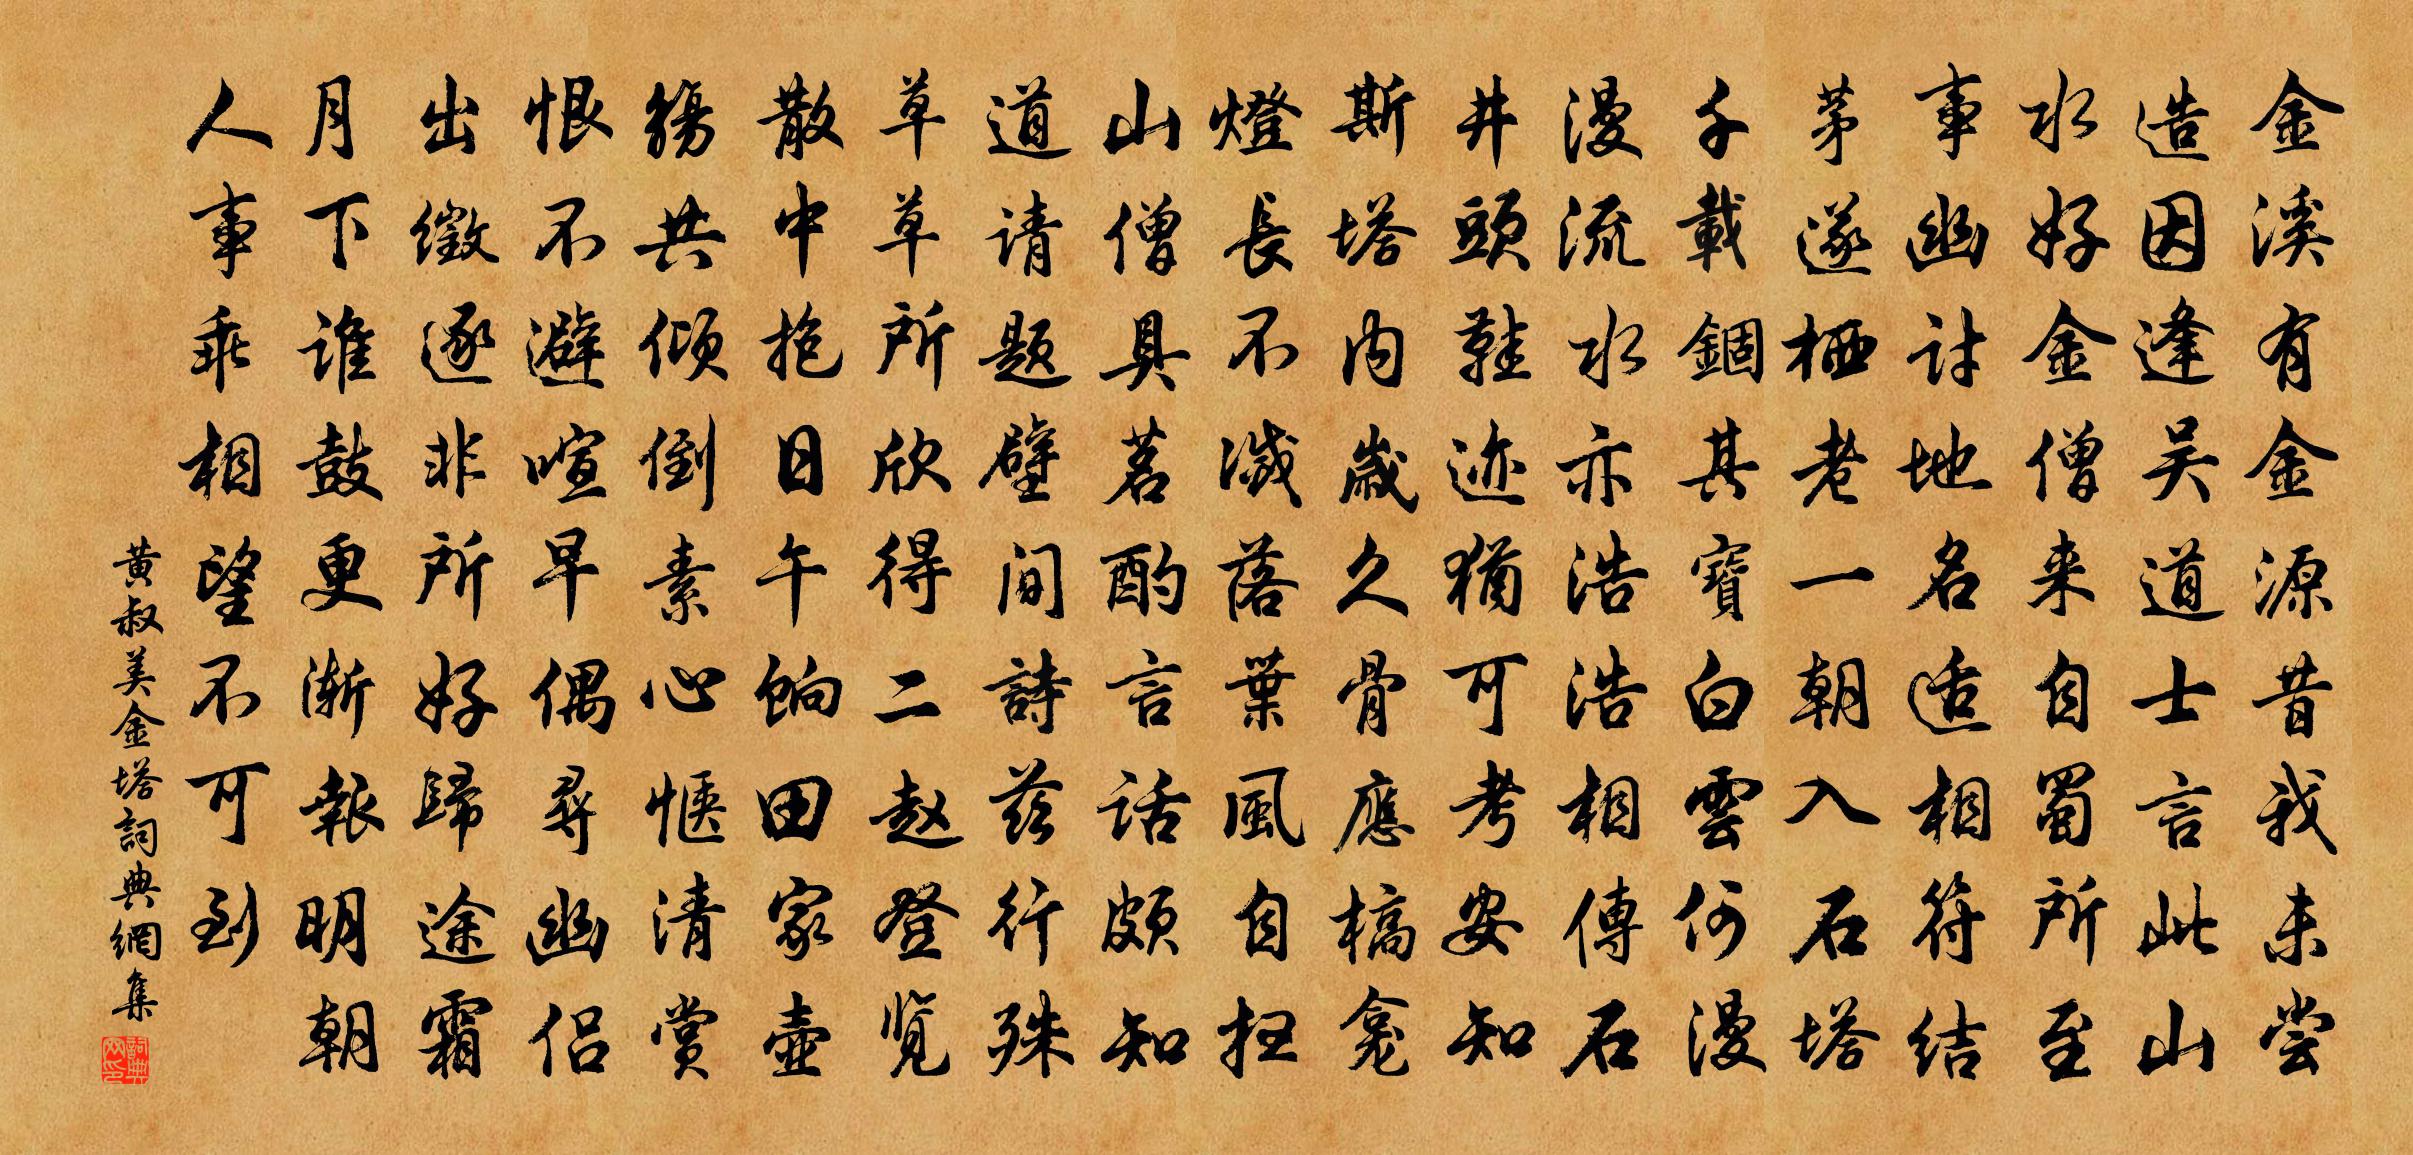 金溪有金源昔我未尝
造因逢吴道士言此山
水好金僧来自蜀所至
事幽討地名适相符结
茅遂栖老一朝入石塔
千載錮其寶白雲何漫
漫流水亦浩浩相傳石
井頭鞋迹猶可考安知
斯塔内歲久骨應槁龛
燈長不滅落葉風自扫
山僧具茗酌言話頗知
道请题壁间詩兹行殊
草草所欣得二赵登览
散中抱日午餉田家壶
觞共倾倒素心愜清赏
恨不避喧早偶尋幽侣
出徵逐非所好歸途霜
月下谁鼓更渐報明朝
人事乖相望不可到
黄叔美金塔詞典網集
詞典网印